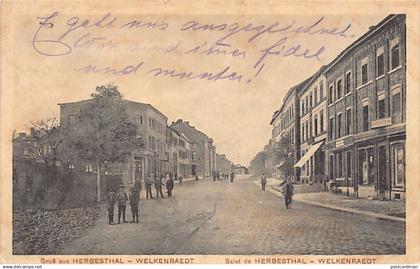 Es geht uns ausgezeichnet
sind immer fidel
und munter!
Gruß aus HERBESTHAL – WELKENRAEDT
Salut de HERBESTHAL – WELKENRAEDT
postcardman